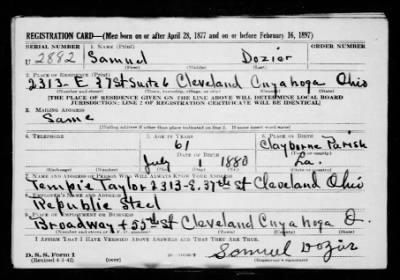 REGISTRATION CARD—(Men born on or after April 28, 1877 and on or before February 16, 1897)
SERIAL NUMBER 1. NAME (Print) ORDER NUMBER
U 2882 Samuel Dozier
(First) (Middle) (Last)
2. PLACE OF RESIDENCE (Print)
2313- E. 37 St Suite 6 Cleveland Cuyahoga Ohio
(Number and street) (Town, township, village, or city) (County) (State)
[THE PLACE OF RESIDENCE GIVEN ON THE LINE ABOVE WILL DETERMINE LOCAL BOARD
JURISDICTION; LINE 2 OF REGISTRATION CERTIFICATE WILL BE IDENTICAL]
3. MAILING ADDRESS
Same
[Mailing address if other than place indicated on line 2. If same insert word same]
4. TELEPHONE 5. AGE IN YEARS 6. PLACE OF BIRTH
61 Clayborne Parish
DATE OF BIRTH
July 1 1880 La.
7. NAME AND ADDRESS OF PERSON WHO WILL ALWAYS KNOW YOUR ADDRESS
Tempie Taylor 2313-E. 37th St Cleveland Ohio
8. EMPLOYER'S NAME AND ADDRESS
Republic Steel
9. PLACE OF EMPLOYMENT OR BUSINESS
Broadway + 55th St Cleveland Cuyahoga O.
(Number and street or R. F. D. number) (Town) (County) (State)
I AFFIRM THAT I HAVE VERIFIED ABOVE ANSWERS AND THAT THEY ARE TRUE.
Samuel Dozier
D. S. S. Form 1
(Revised 4-1-42) (over)